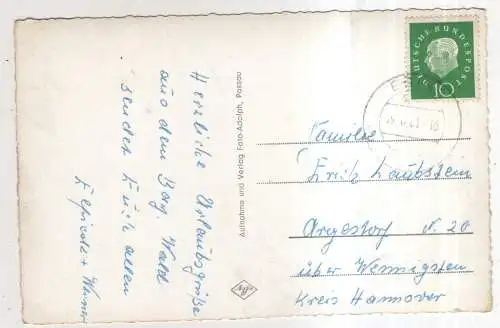 Herzliche Urlaubsgrüße
aus dem Bay. Wald
sendet Euch allen
+ Werner
Aufnahme und Verlag Foto-Adolph, Passau
Agfa
DEUTSCHE BUNDESPOST
10
Familie
Erich Laubstein
Argestorf N. 20
über Wennigsen
Kreis Hannover